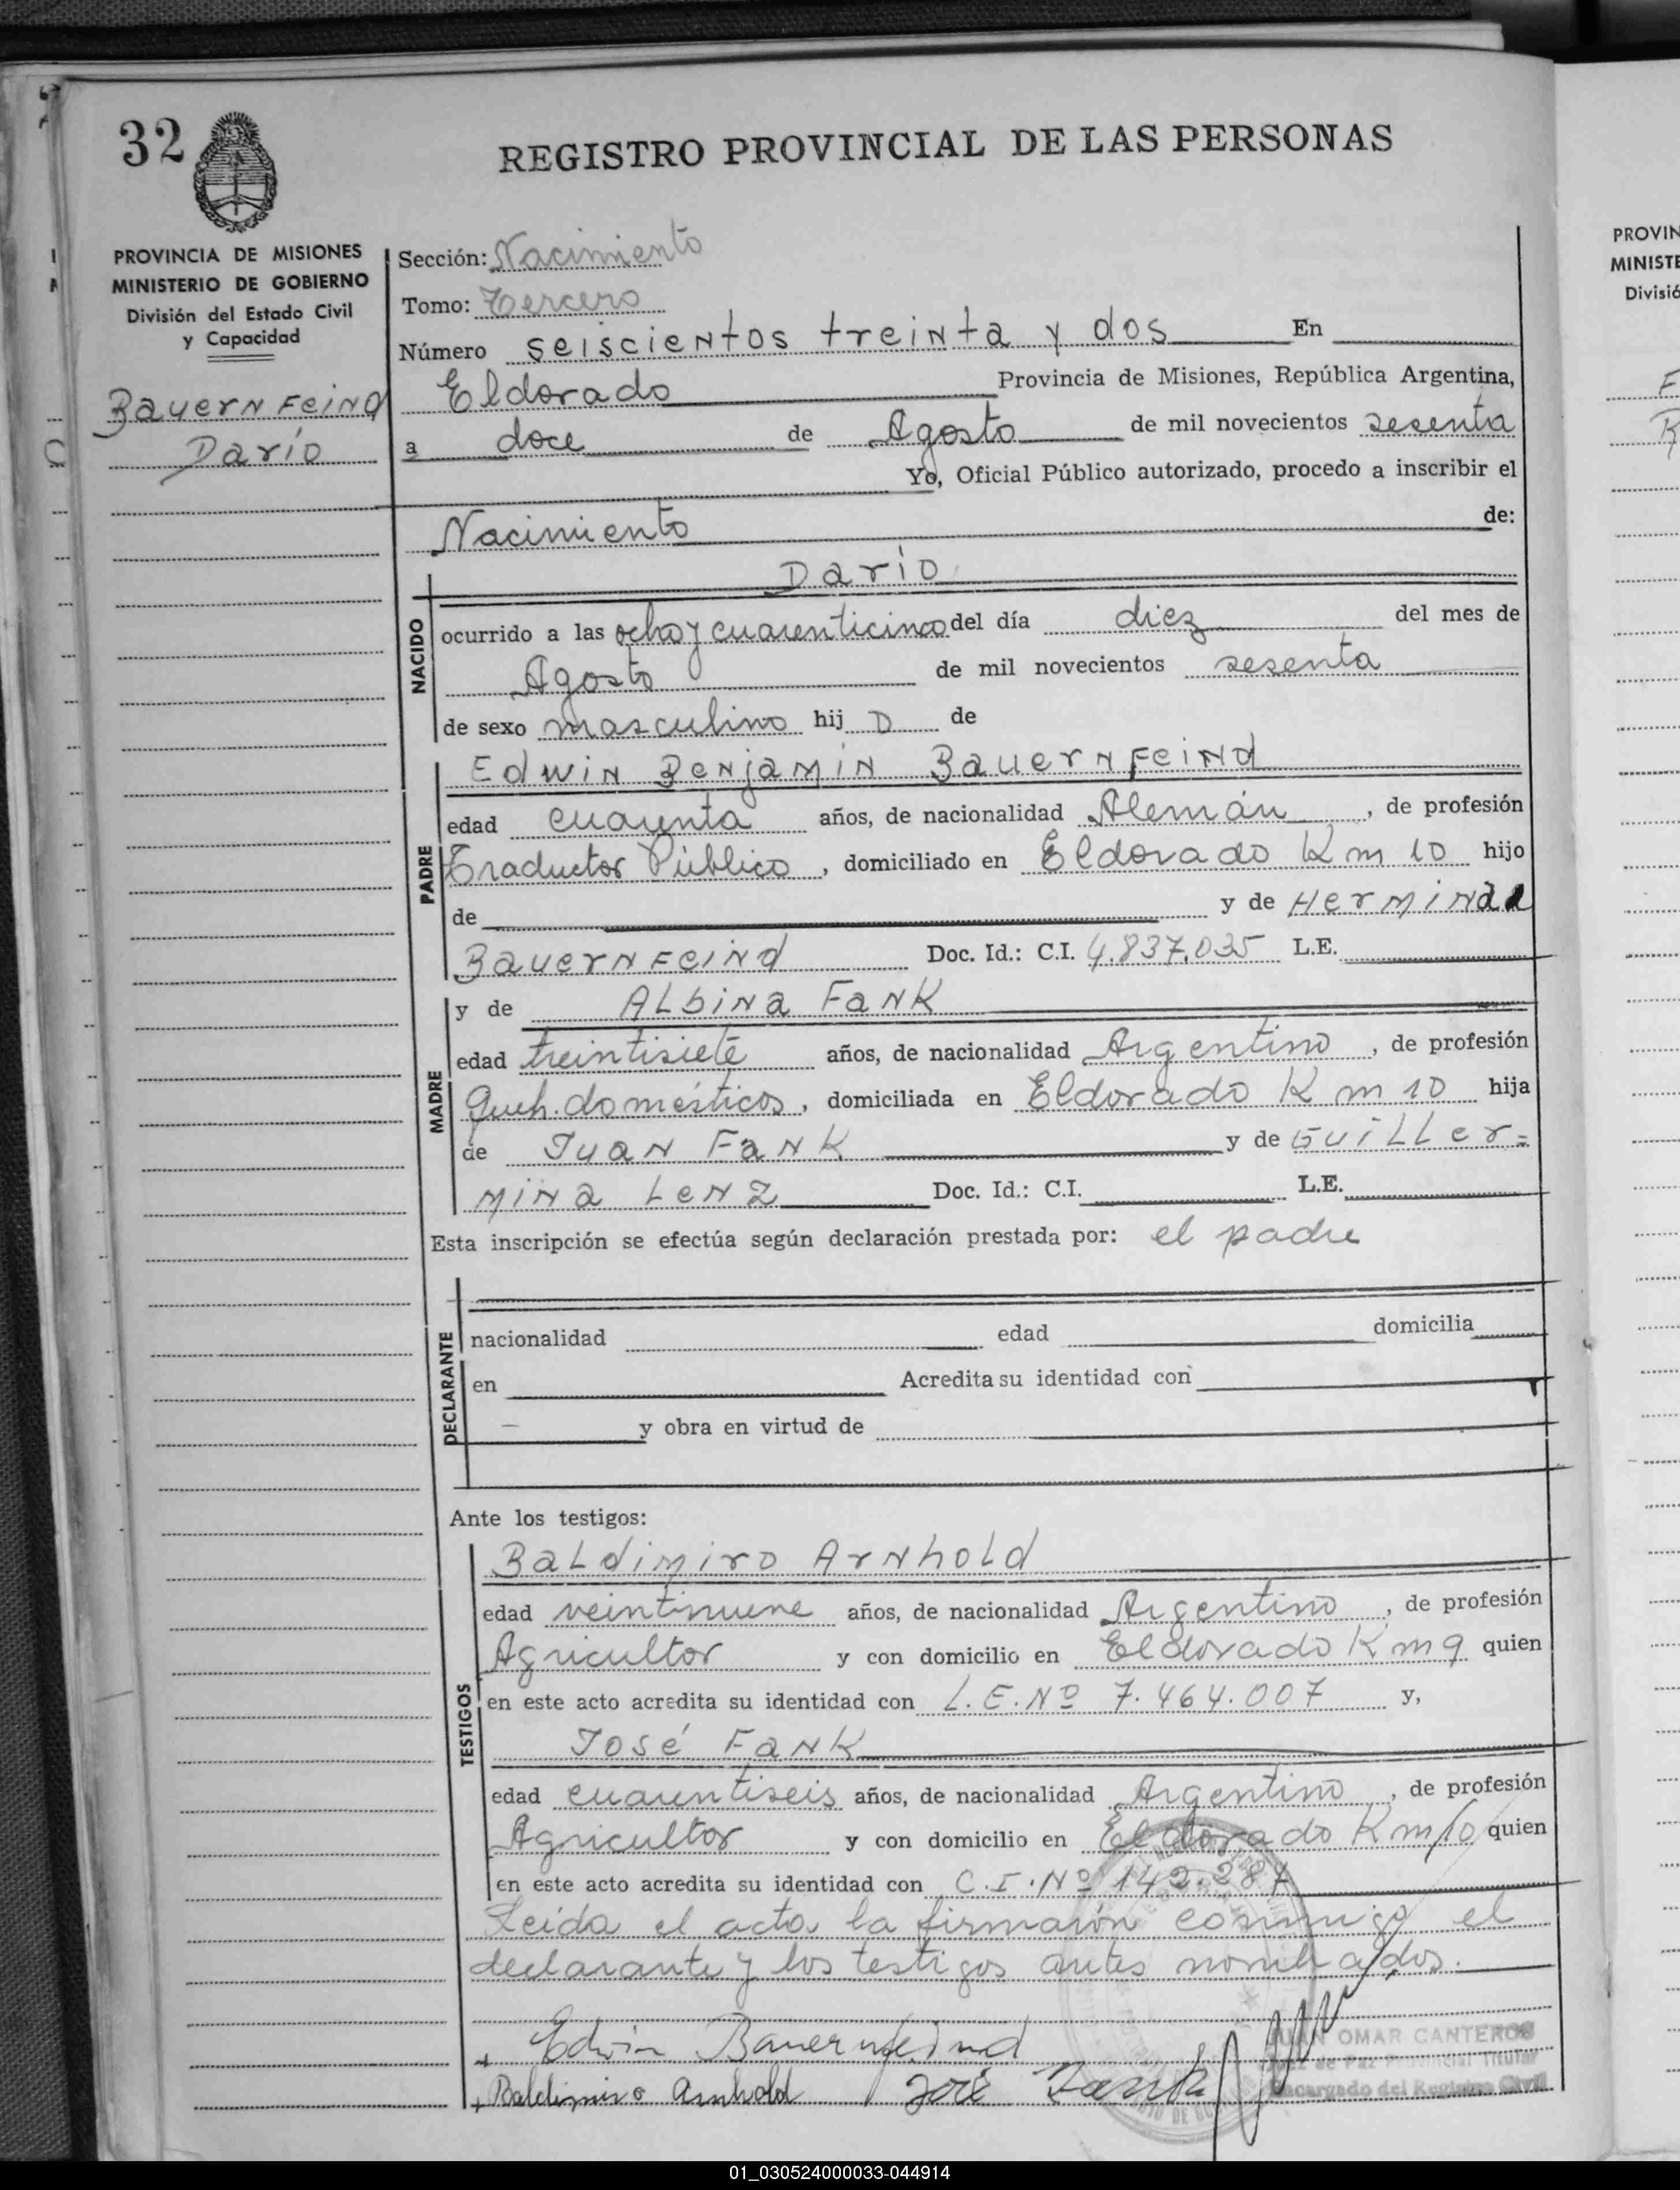 32
REGISTRO PROVINCIAL DE LAS PERSONAS
PROVINCIA DE MISIONES
MINISTERIO DE GOBIERNO
División del Estado Civil
y Capacidad
Bauernfeind
Darío
Sección: Nacimiento
Tomo: Tercero
Número seiscientos treinta y dos En
Eldorado Provincia de Misiones, República Argentina,
a doce de Agosto de mil novecientos sesenta
Yo, Oficial Público autorizado, procedo a inscribir el
Nacimiento de:
Darío
NACIDO
ocurrido a las ocho y cuarenticinco del día diez del mes de
Agosto de mil novecientos sesenta
de sexo masculino hij o de
PADRE
Edwin Benjamín Bauernfeind
edad cuarenta años, de nacionalidad Alemán, de profesión
Traductor Público, domiciliado en Eldorado Km 10 hijo
de y de Hermina
Bauernfeind Doc. Id.: C.I. 4.837.035 L.E.
MADRE
y de Albina Fank
edad treintisiete años, de nacionalidad Argentino, de profesión
Queh. domésticos, domiciliada en Eldorado Km 10 hija
de Juan Fank y de Guiller=
mina Lenz Doc. Id.: C.I. L.E.
Esta inscripción se efectúa según declaración prestada por: el padre
DECLARANTE
nacionalidad edad domicilia
en Acredita su identidad con
y obra en virtud de
Ante los testigos:
TESTIGOS
Baldimiro Arnhold
edad veintinueve años, de nacionalidad Argentino, de profesión
Agricultor y con domicilio en Eldorado Km 9 quien
en este acto acredita su identidad con L.E.Nº 7.464.007 y,
José Fank
edad cuarentiseis años, de nacionalidad Argentino, de profesión
Agricultor y con domicilio en Eldorado Km 10 quien
en este acto acredita su identidad con C.I.Nº 142.287
Leída el acta la firmarón conmigo el
declarante y los testigos antes nombrados.
Edwin Bauernfeind
Baldimiro Arnhold José Fank
JUAN OMAR CANTEROS
Juez de Paz Provincial Titular
Encargado del Registro Civil
PROVIN
MINISTE
Divisió
01_030524000033-044914